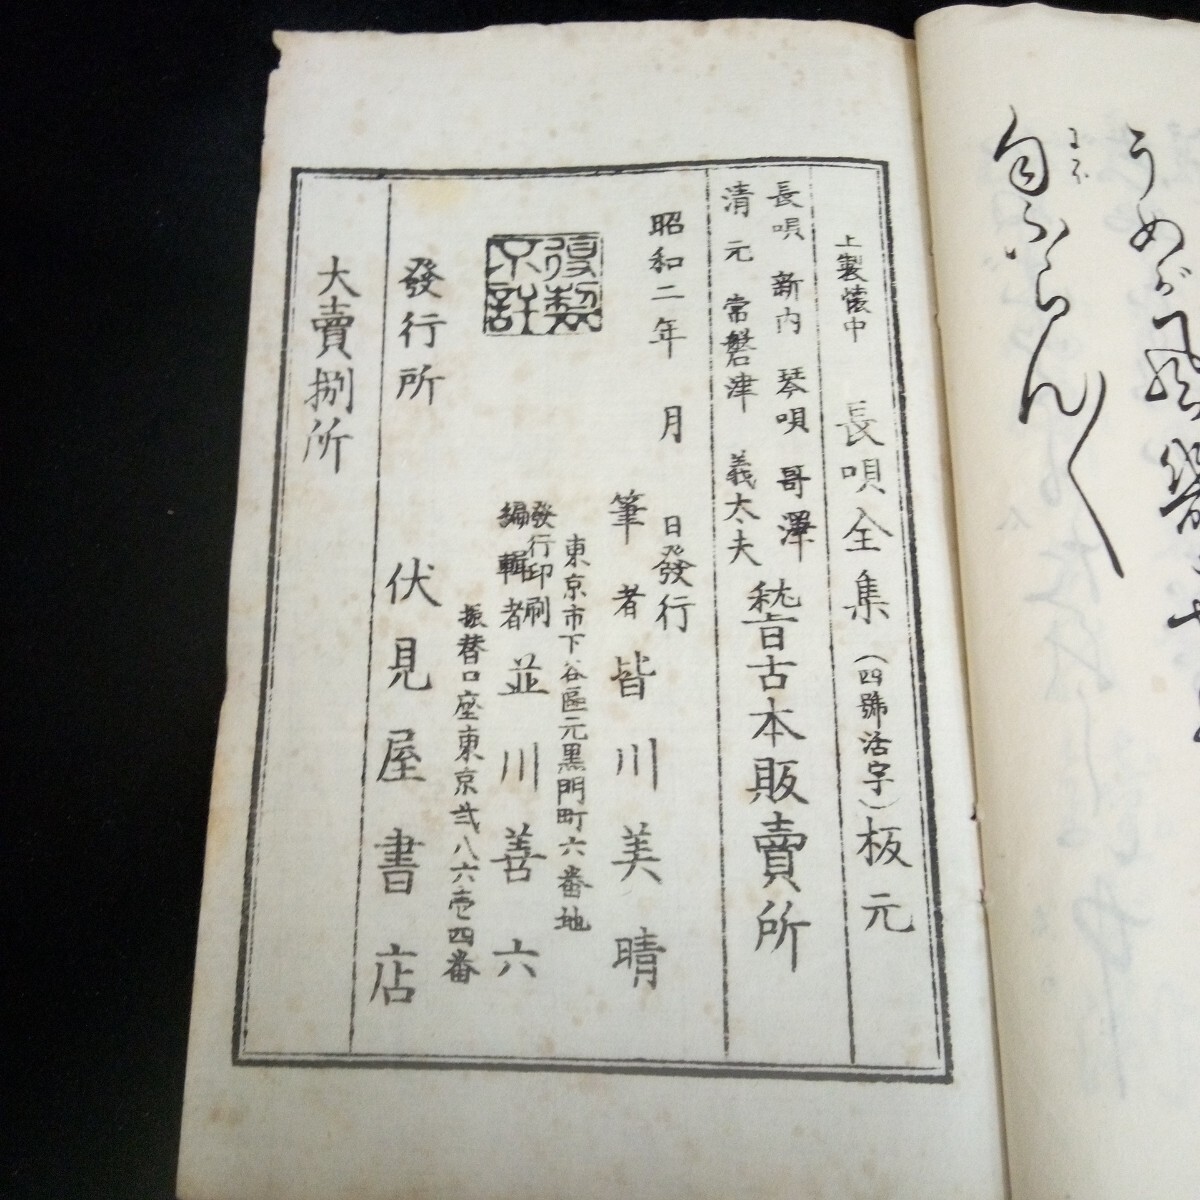 うめが風
匂ふらん〱
上製懐中 長唄全集(四號活字)板元
長唄 新内 琴唄 哥澤
清元 常磐津 義太夫
嵇古本販賣所
昭和二年 月 日發行
複製不許
筆者 皆川美晴
東京市下谷區元黒門町六番地
發行印刷
編輯者 並川善六
振替口座東京弐八六壱四番
發行所 伏見屋書店
大賣捌所